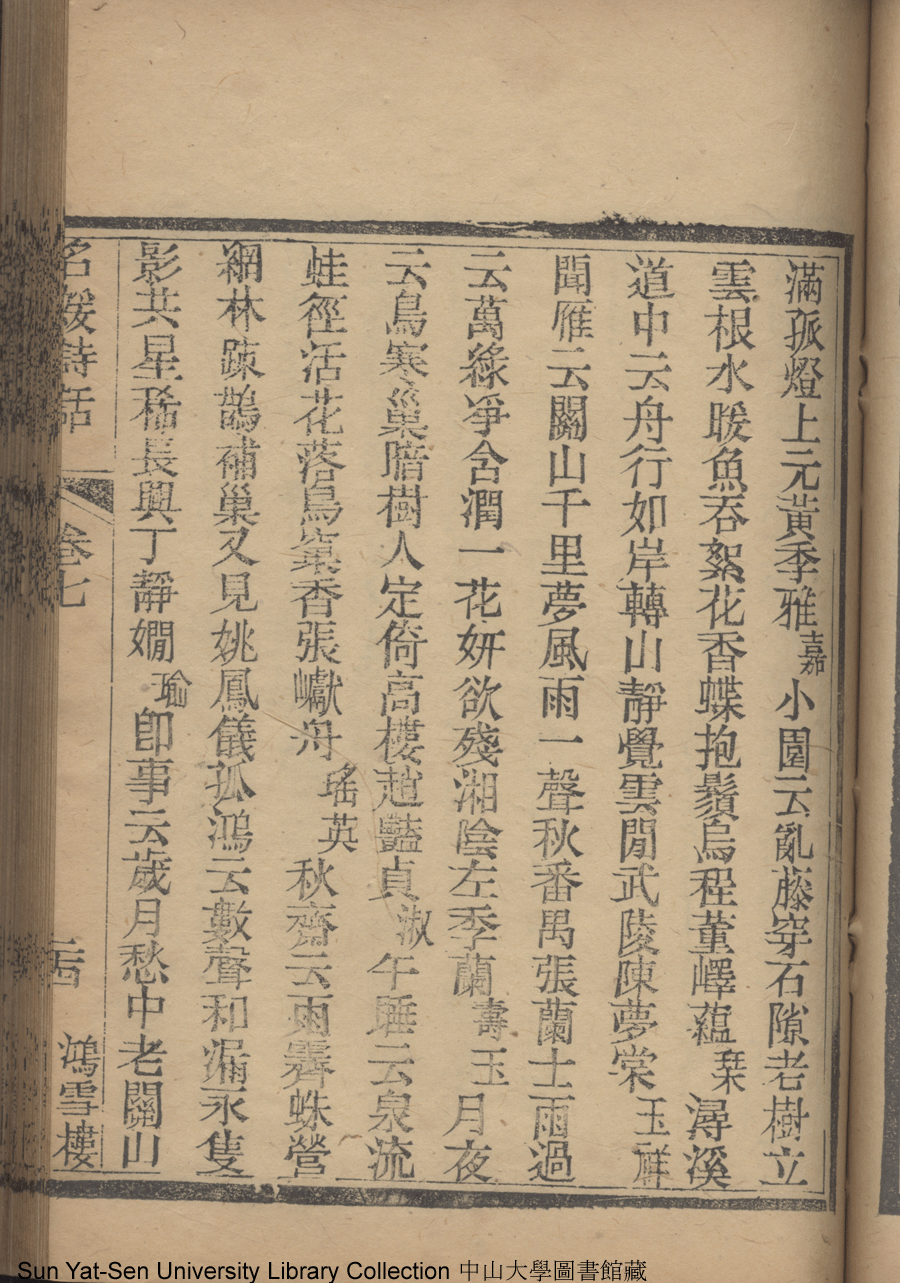 滿孤燈上元黃季雅嘉小園云亂藤穿石隙老樹立
雲根水暖魚吞絮花香蝶抱鬚烏程董嶧蘊琹潯溪
道中云舟行如岸轉山靜覺雲閒武陵陳夢棠玉祥
聞雁云關山千里夢風雨一聲秋番禺張蘭士雨過
云萬綠爭含潤一花妍欲殘湘陰左季蘭壽玉月夜
云鳥寒巢暗樹人定倚高樓趙豔貞淑午睡云泉流
蛙徑活花落鳥窠香張巘舟瑤英秋齋云雨霽蛛營
網林疎鵲補巢又見姚鳳儀孤鴻云數聲和漏永隻
影共星稀長興丁靜嫺瑜卽事云歲月愁中老關山
名媛詩話 卷七 鴻雪樓
Sun Yat-Sen University Library Collection 中山大學圖書館藏